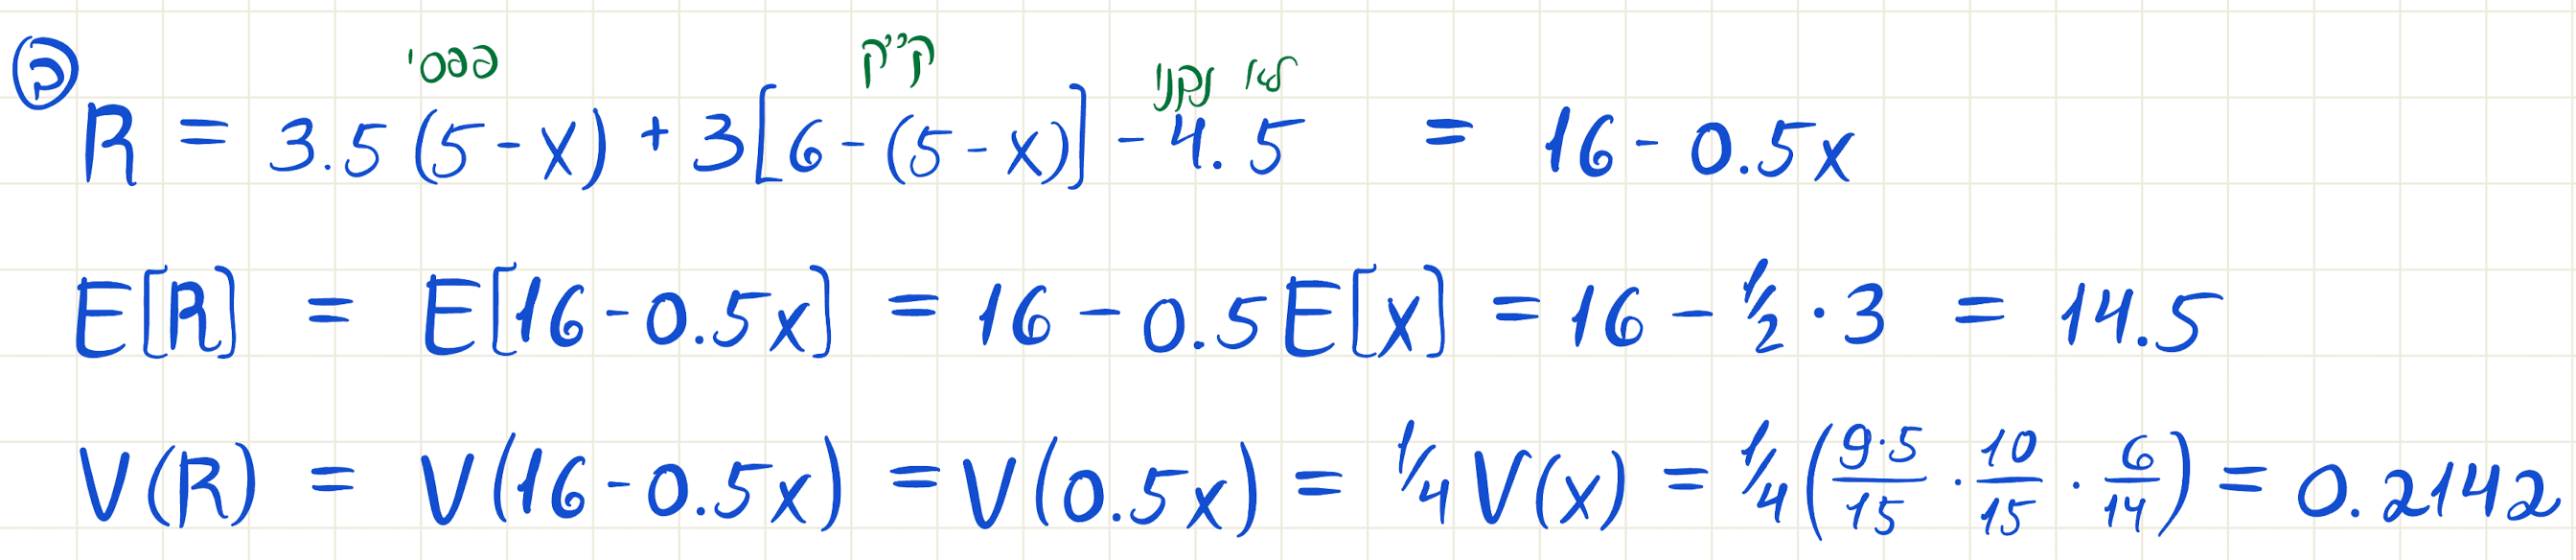 ב
פפסי קייק לא נקנו
R = 3.5 (5 - x) + 3[6 - (5 - x)] - 4.5 = 16 - 0.5x
E[R] = E[16 - 0.5x] = 16 - 0.5E[x] = 16 - 1/2 · 3 = 14.5
V(R) = V(16 - 0.5x) = V(0.5x) = 1/4 V(x) = 1/4 (9·5/15 · 10/15 · 6/14) = 0.2142